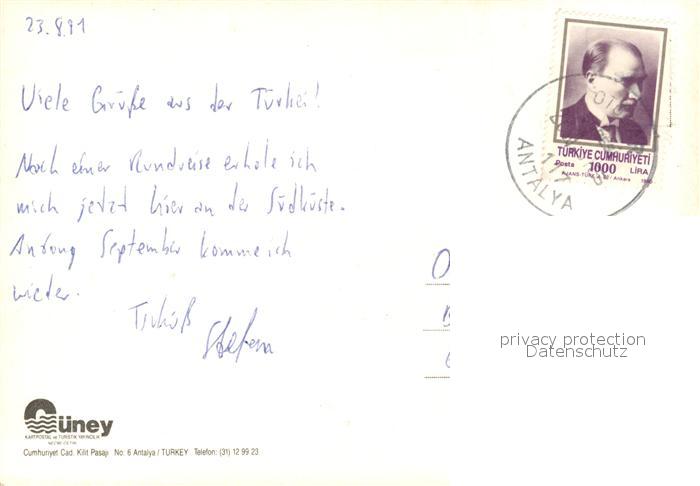 23.8.91
Viele Grüße aus der Türkei!
Nach einer Rundreise erhole ich
mich jetzt hier an der Südküste.
Anfang September komme ich
wieder.
Tschüß
Stefan
TÜRKİYE CUMHURİYETİ
Posta 1000 LİRA
AJANS-TÜRK / Ankara
ANTALYA
privacy protection
Datenschutz
Güney
KARTPOSTAL ve TURİSTİK YAYINCILIK
Cumhuriyet Cad. Kilit Pasajı No: 6 Antalya / TURKEY Telefon: (31) 12 99 23